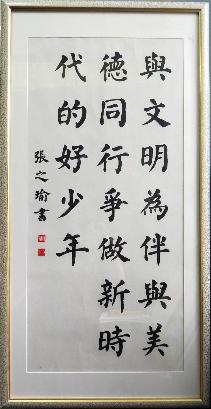 與文明為伴與美
德同行爭做新時
代的好少年
張之瑜書